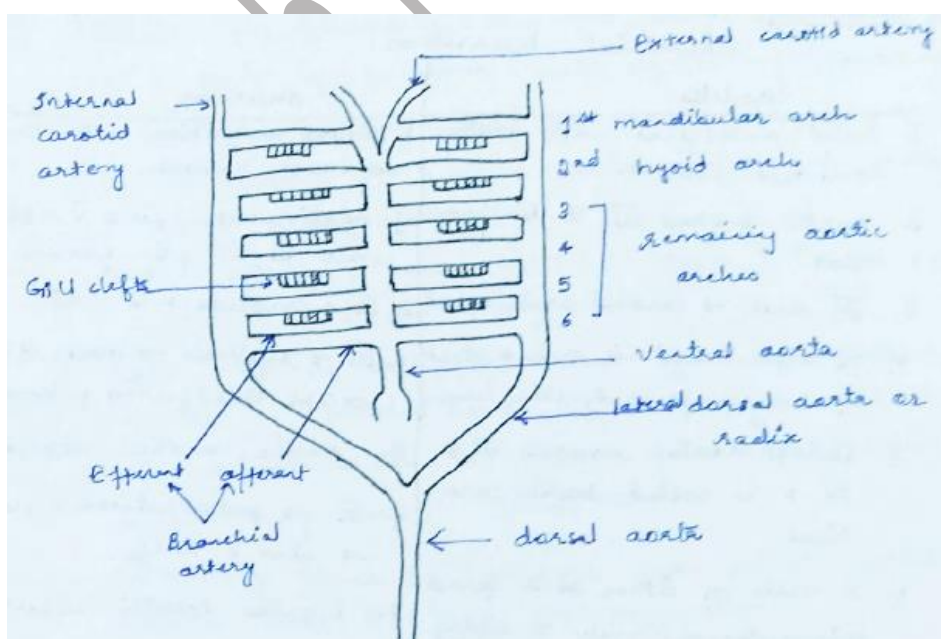 External carotid artery
Internal
carotid
artery
1st mandibular arch
2nd hyoid arch
3
4
5
6
remaining aortic
arches
Gill clefts
Ventral aorta
lateral dorsal aorta or
radix
Efferent afferent
Branchial
artery
dorsal aorta